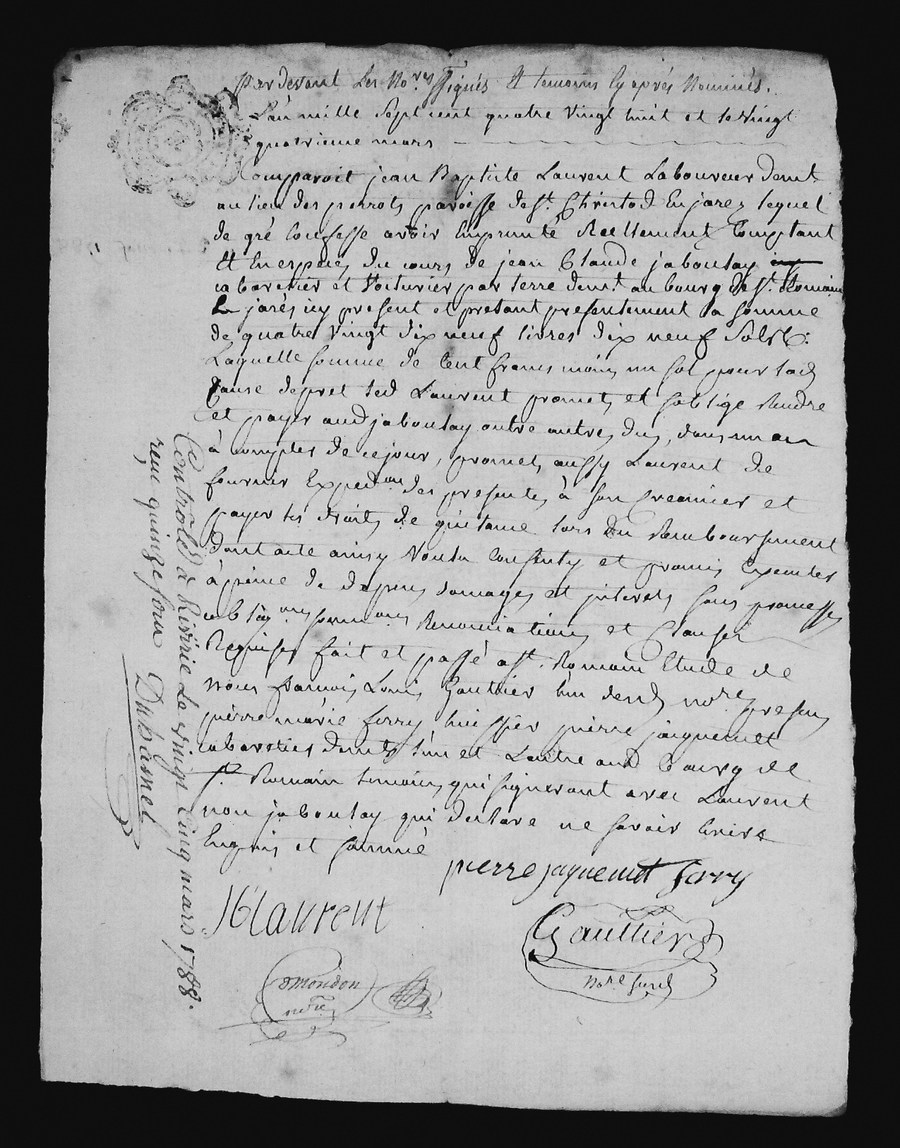 Par devant Les No.res ssignés et temoins cy après Nommés.
L'an mille sept cent quatre vingt huit et le vingt
quatrieme mars
Comparoit jean Baptiste Laurent Laboureur demt
au lieu des perrots paroisse de St. Christod En jarez lequel
de gré Confesse avoir Emprunté Reellement Comptant
Et En espèces du cours de jean Claude jaboulay
cabaretier et Voiturier par terre demt. au bourg de St. Romain
En jarés icy present et pretant presentement la somme
de quatre vingt dix neuf livres dix neuf sols
Laquelle somme de Cent francs moins un sol pour lad
Cause de pret led Laurent promet et s'oblige Rendre
et payer aud jaboulay outre autres dus, dans un an
à compter de ce jour, promet aussy Laurent de
fournir Expedon des presentes à son Creancier et
payer les droits de quitance lors du Remboursement
Dont acte ainsy Voulu Consenty et promis Executer
à peine de depens domages et interets sous promesses
obligons soumons Renonciations et Clauses
Requises fait et passé a St. Romain Etude de
Nous francois Louis Gaultier l'un desd nores presens
pierre marie ferry huissier pierre jaquemet
cabaretier demts l'un et L'autre aud Bourg de
St. Romain temoins qui signeront avec Laurent
non jaboulay qui declare ne savoir Ecrire
Enquis et sommé
pierre jaquemet ferry
JB laurent
Gaultier
nore furd
Mondon
notre
Controlé à Riverie Le vingt Cinq mars 1788.
reçu quinze sous Duhamel